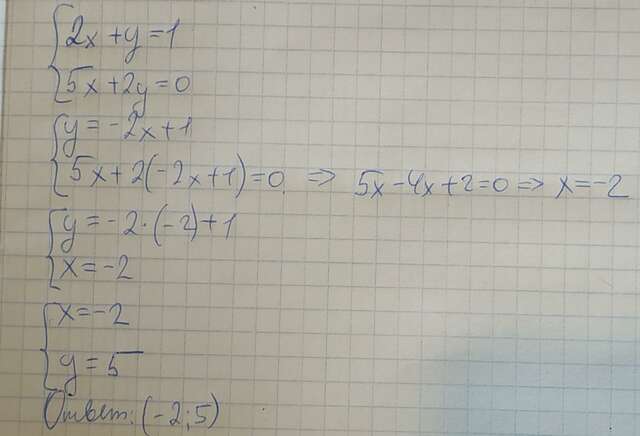 {2x+y=1
{5x+2y=0
{y=-2x+1
{5x+2(-2x+1)=0 => 5x-4x+2=0 => x=-2
{y=-2·(-2)+1
{x=-2
{x=-2
{y=5
Ответ: (-2;5)